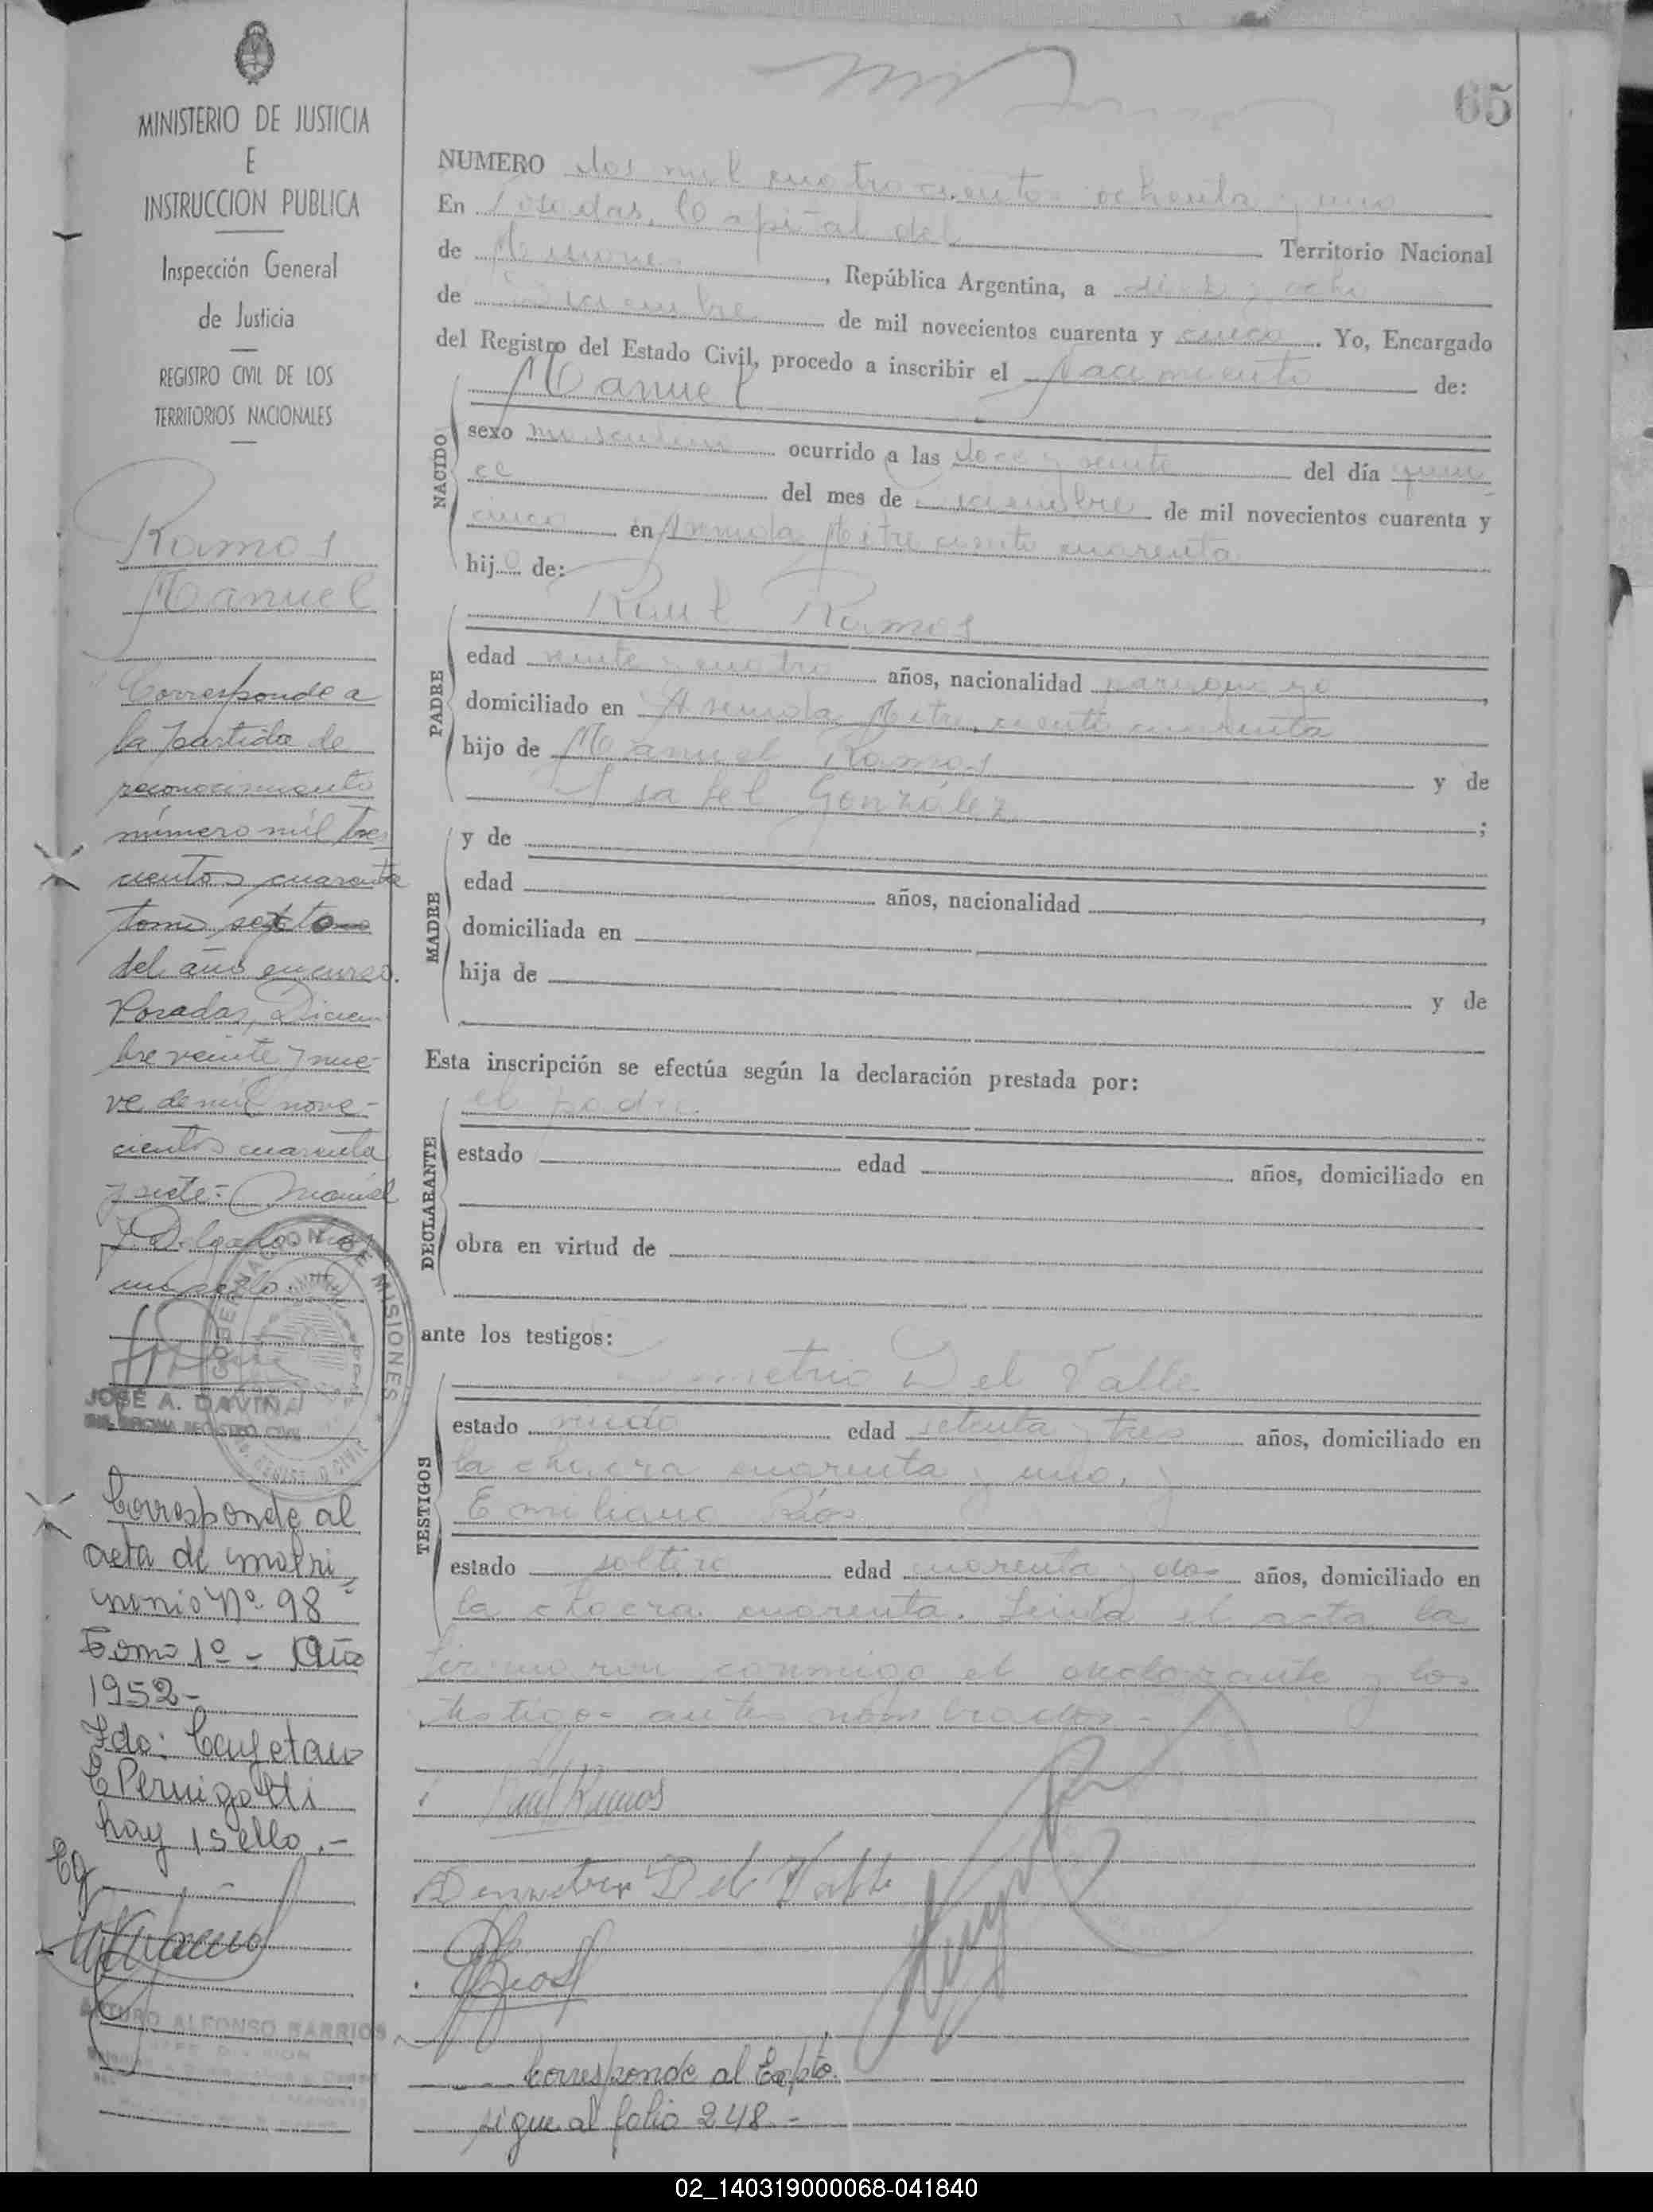 65
MINISTERIO DE JUSTICIA
E
INSTRUCCION PUBLICA
Inspección General
de Justicia
REGISTRO CIVIL DE LOS
TERRITORIOS NACIONALES
Ramos
Manuel
Corresponde a
la partida de
reconocimiento
número mil tres
cientos cuarenta
tomo sexto
del año en curso.
Posadas, Diciem
bre veinte y nue-
ve de mil nove-
cientos cuarenta
y siete - Manuel
Delgado. Hay
un sello.
GOBERNACION DE MISIONES
JOSÉ A. DAVIÑA
REGISTRO CIVIL
Corresponde al
acta de matri
monio Nº 98
Tomo 1º - Año
1952 -
Fdo: Cayetano
E Pernigotti
hay 1 sello.-
ARTURO ALFONSO BARRIOS
NUMERO dos mil cuatrocientos ochenta y uno
En Posadas, Capital del Territorio Nacional
de Misiones, República Argentina, a diez y ocho
de Diciembre de mil novecientos cuarenta y cinco. Yo, Encargado
del Registro del Estado Civil, procedo a inscribir el nacimiento de:
Manuel
NACIDO
sexo masculino ocurrido a las doce y veinte del día quin
ce del mes de Diciembre de mil novecientos cuarenta y
cinco en Avenida Mitre ciento cuarenta
hijo de:
Raul Ramos
PADRE
edad veinte y cuatro años, nacionalidad paraguayo,
domiciliado en Avenida Mitre, ciento cuarenta
hijo de Manuel Ramos y de
Isabel González;
MADRE
y de
edad años, nacionalidad,
domiciliada en
hija de y de
Esta inscripción se efectúa según la declaración prestada por:
el padre
DECLARANTE
estado edad años, domiciliado en
obra en virtud de
ante los testigos:
Demetrio Del Valle
TESTIGOS
estado viudo edad setenta y tres años, domiciliado en
la chacra cuarenta y uno, y
Emiliano Ríos
estado soltero edad cuarenta y dos años, domiciliado en
la chacra cuarenta. Leida el acta la
firmaron conmigo el declarante y los
testigos antes nombrados.-
Raul Ramos
Demetrio Del Valle
Rios
Corresponde al Expte.
sigue al folio 248.-
02_140319000068-041840